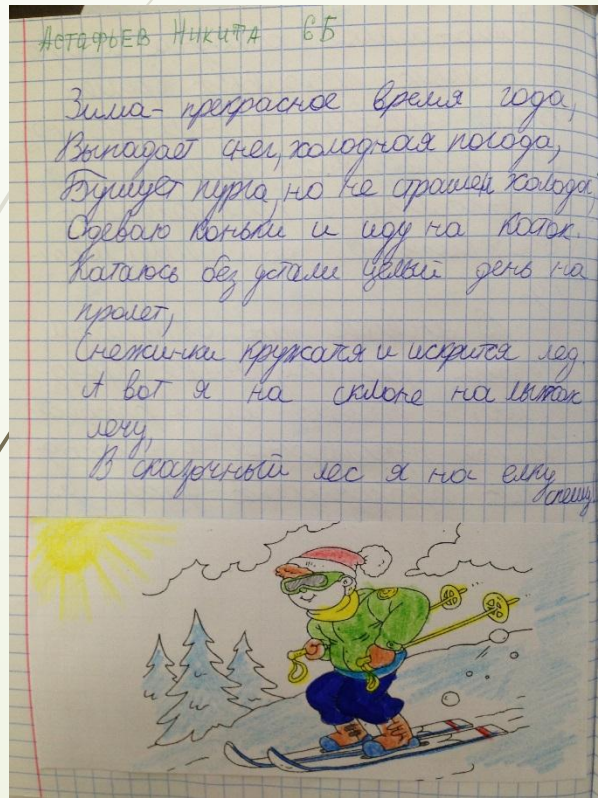 Астафьев Никита 6Б
Зима - прекрасное время года,
Выпадает снег, холодная погода,
Бушует пурга, но не страшен холода,
Одеваю коньки и иду на каток.
Катаюсь без устали целый день на
пролет,
Снежинки кружатся и искрится лед.
А вот я на склоне на лыжах
лечу,
В сказочный лес я на елку
спешу.